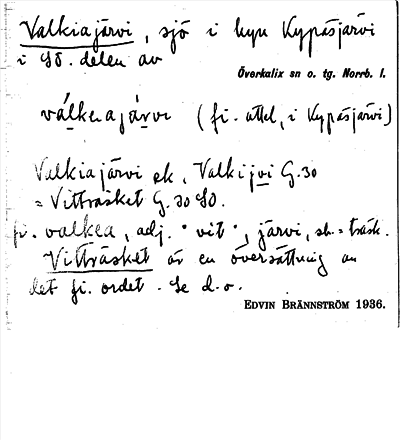 Valkiajärvi, sjö i byn Kypäsjärvi
i SO. delen av
Överkalix sn o. tg. Norrb. l.
válkeajárvi (fi. uttal, i Kypäsjärvi)
Valkiajärvi ek, Valkijvi G.30
= Vitträsket G.30 SO.
fi. valkea, adj. "vit", järvi, sb. = träsk.
Vitträsket är en översättning av
det fi. ordet. Se d.o.
EDVIN BRÄNNSTRÖM 1936.